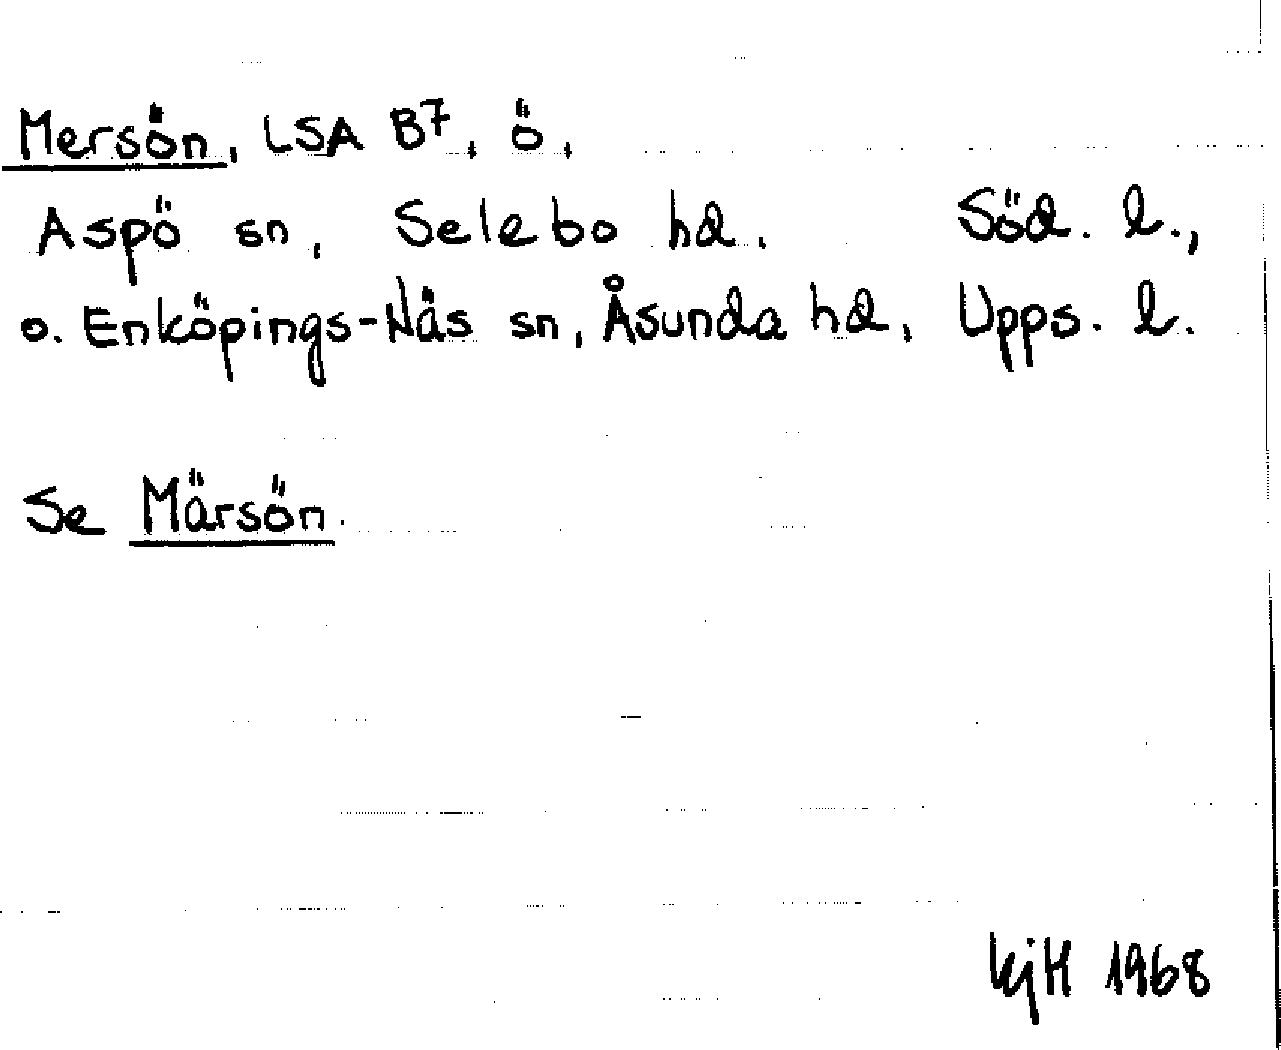 Mersön, LSA B7, ö,
Aspö sn, Selebo hd. Söd. l.,
o. Enköpings-Näs sn, Åsunda hd, Upps. l.
Se Märsön.
KjH 1968